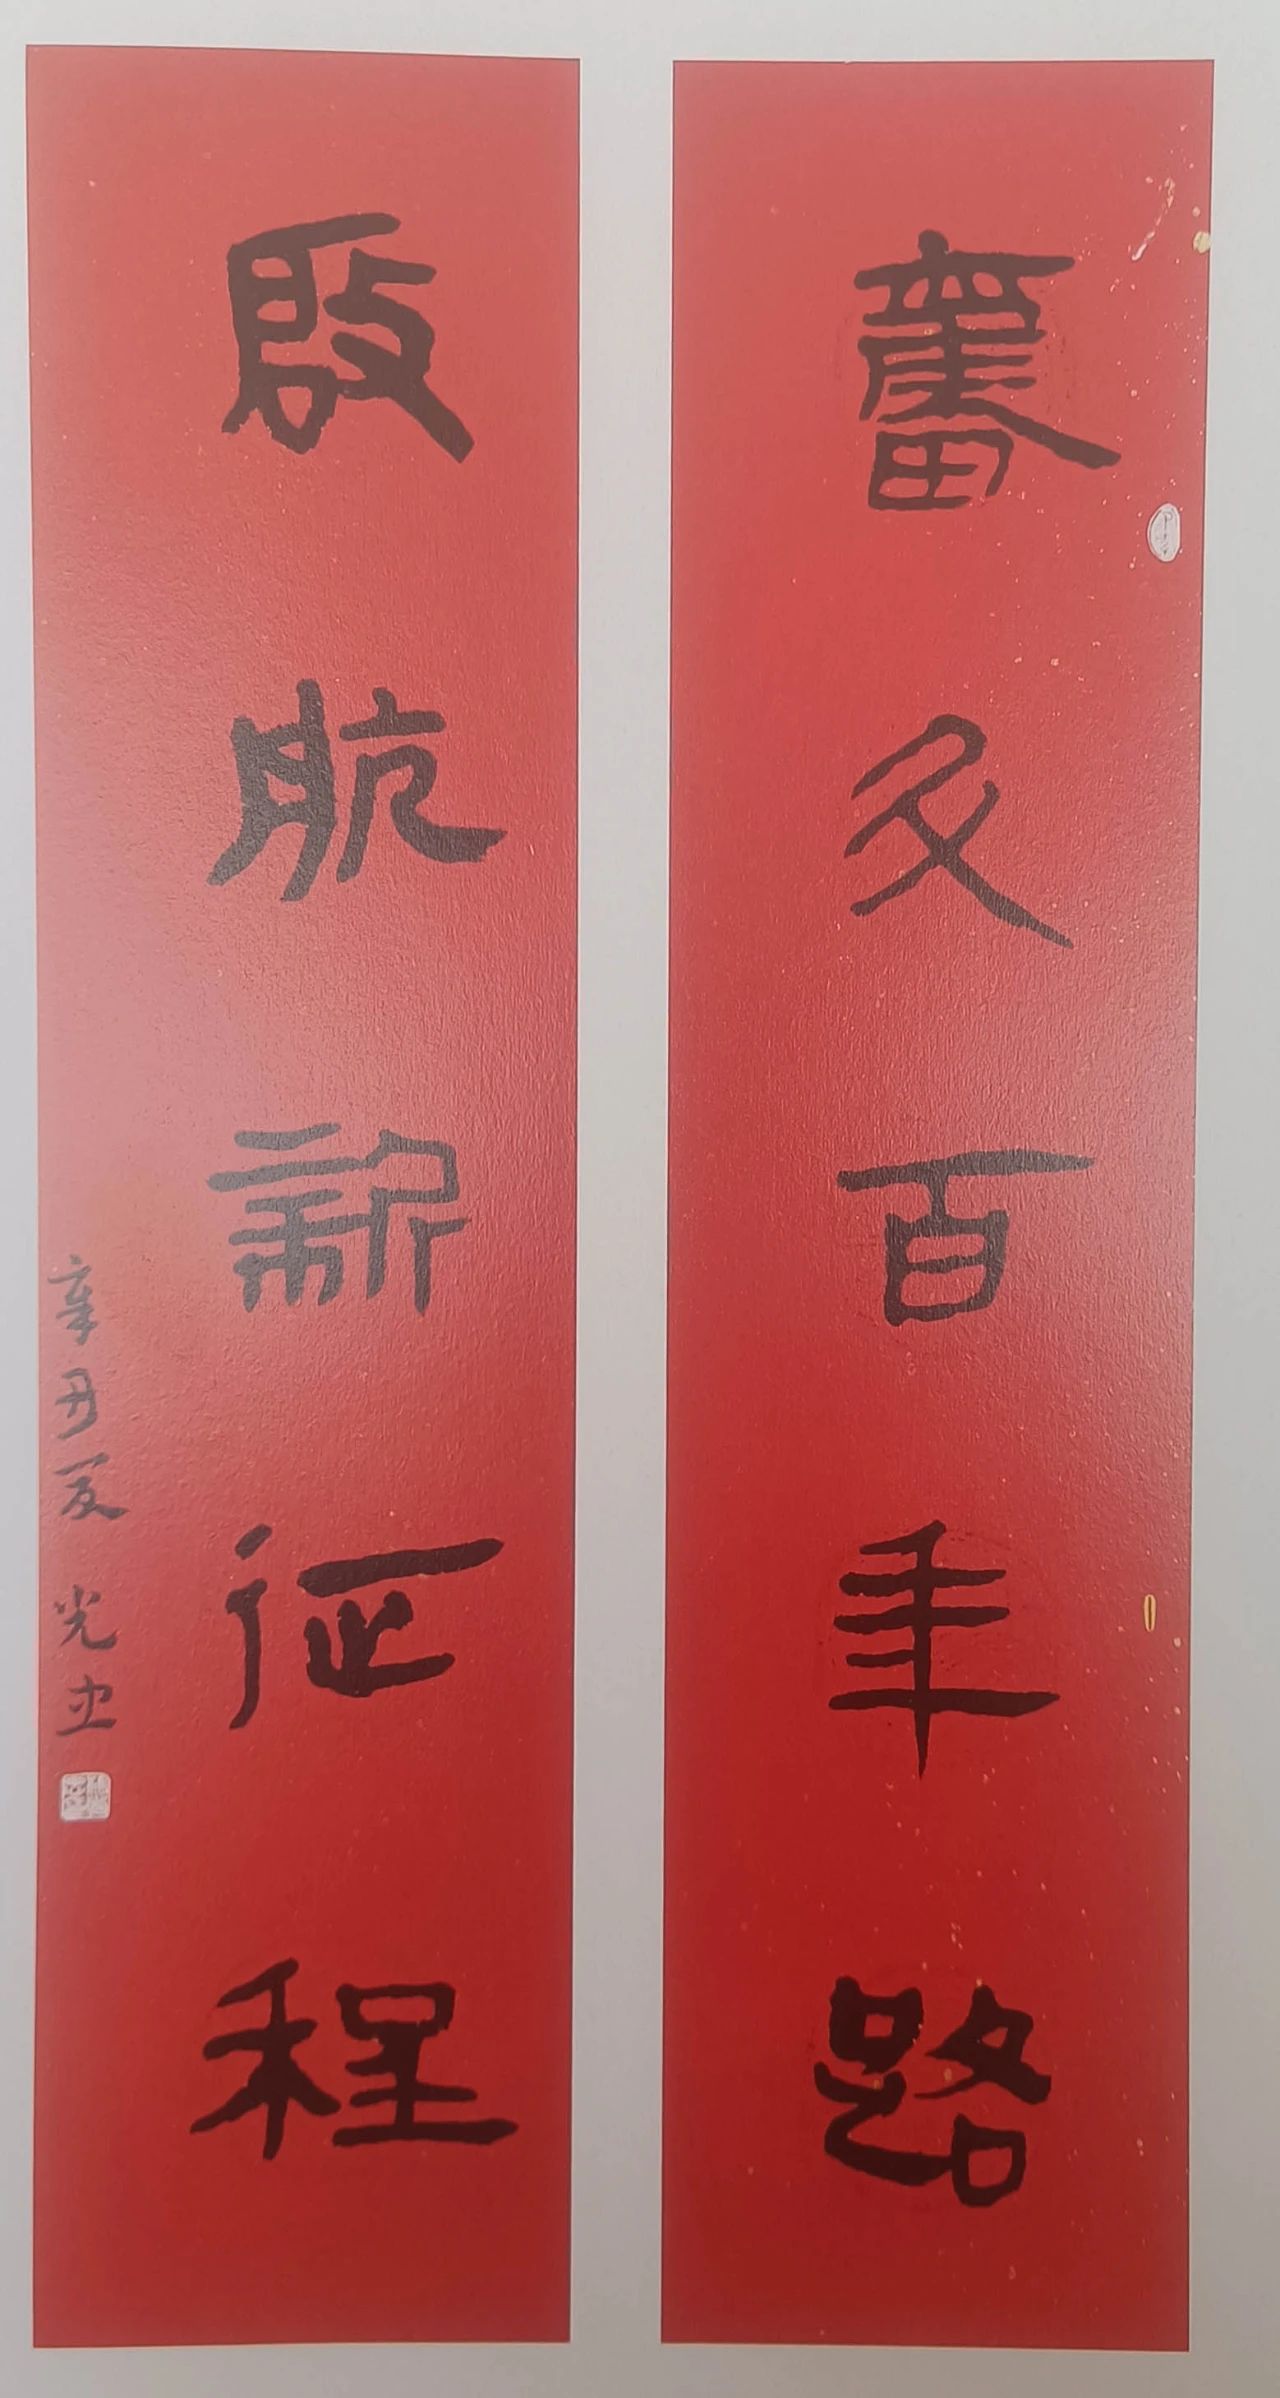 奮斗百年路
啟航新征程
辛丑夏 光